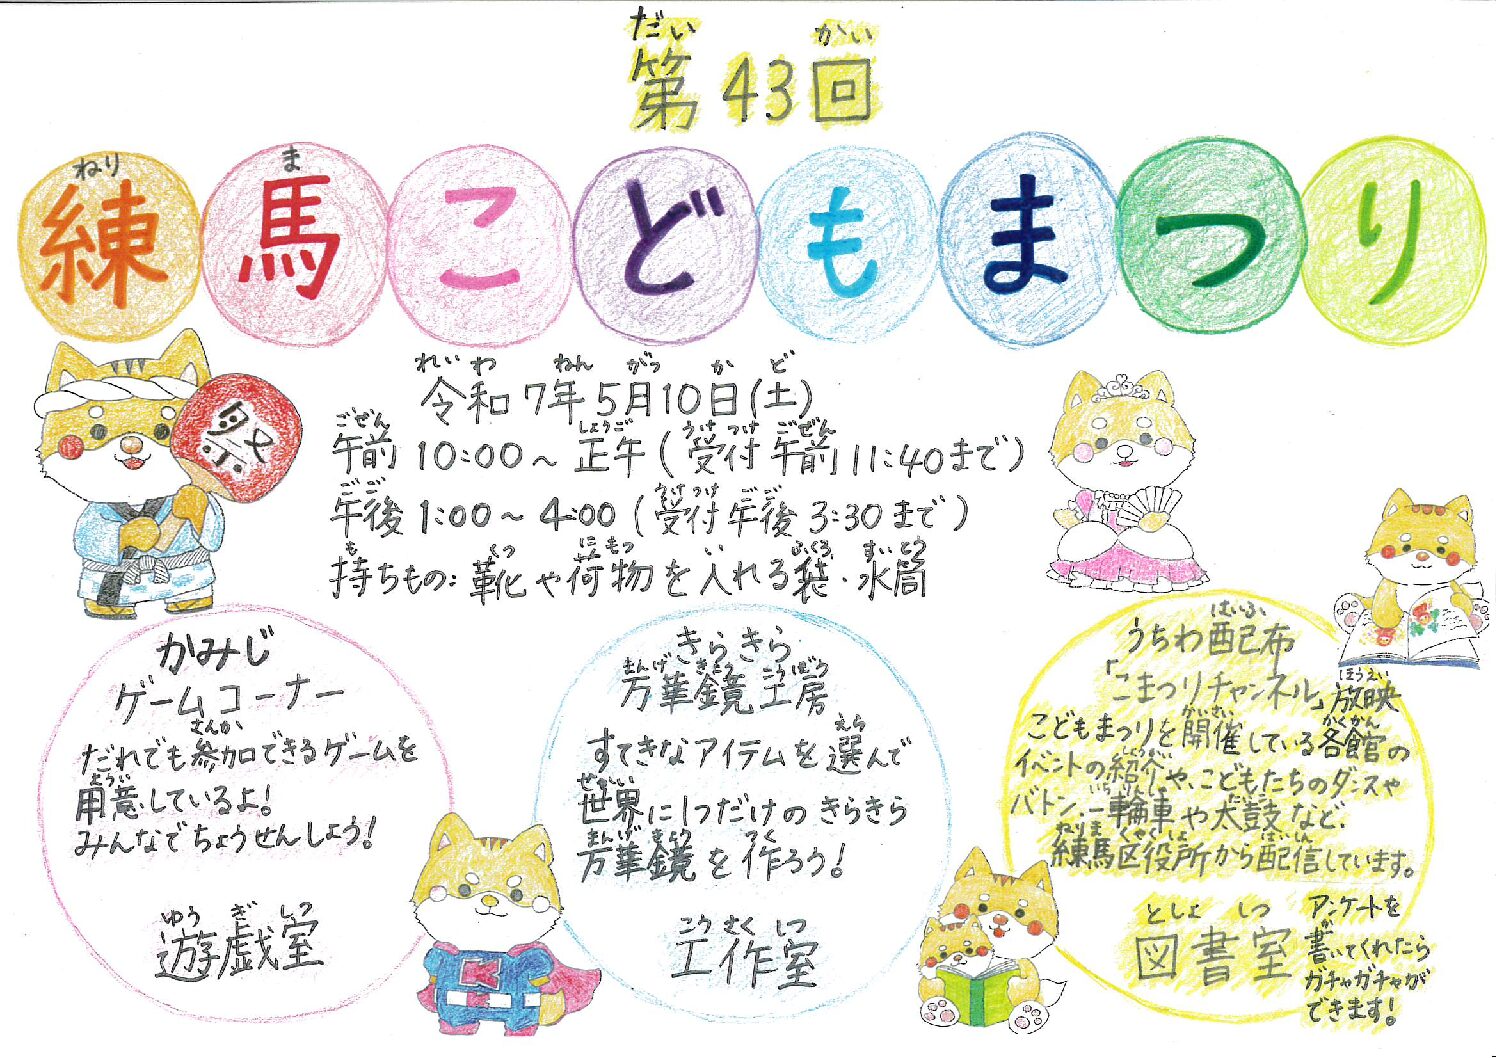 第43回
練馬こどもまつり
祭
令和7年5月10日(土)
午前10:00～正午(受付午前11:40まで)
午後1:00～4:00(受付午後3:30まで)
持ちもの:靴や荷物を入れる袋・水筒
かみじ
ゲームコーナー
だれでも参加できるゲームを
用意しているよ!
みんなでちょうせんしよう!
遊戯室
きらきら
万華鏡工房
すてきなアイテムを選んで
世界に1つだけのきらきら
万華鏡を作ろう!
工作室
うちわ配布
「こまつりチャンネル」放映
こどもまつりを開催している各館の
イベントの紹介や、こどもたちのダンスや
バトン、一輪車や太鼓など、
練馬区役所から配信しています。
図書室
アンケートを
書いてくれたら
ガチャガチャが
できます!
K